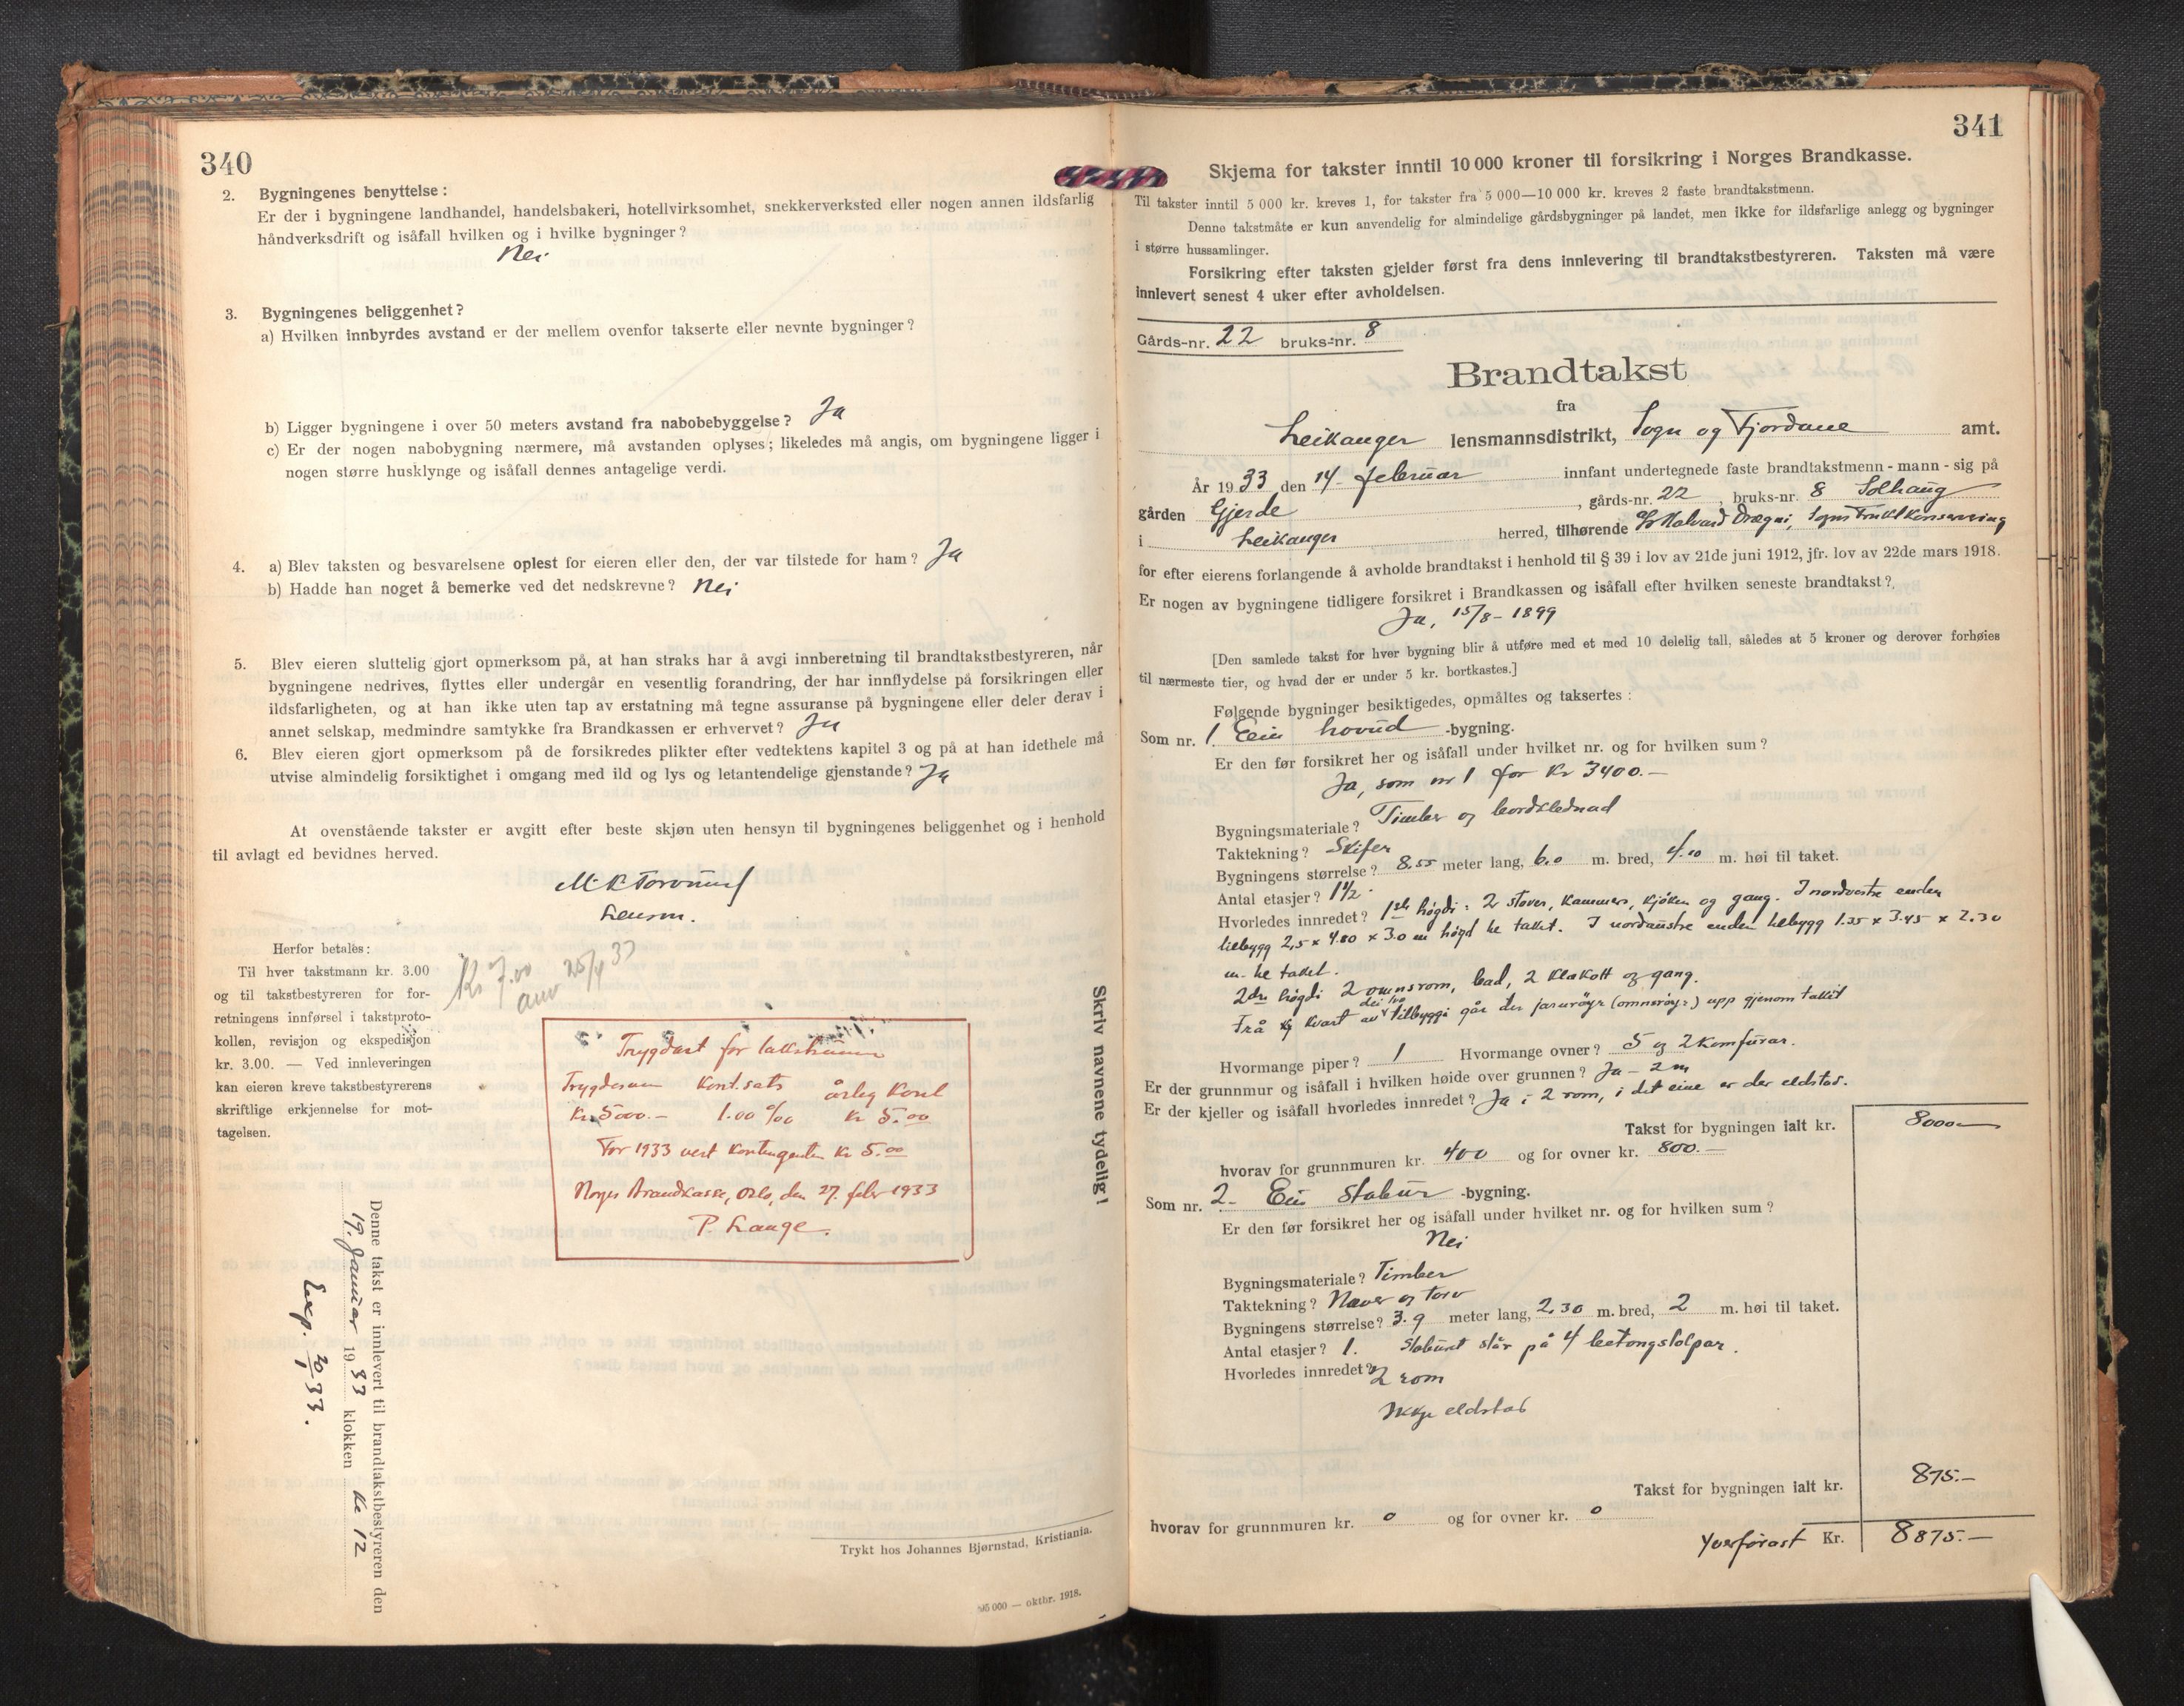 340
2. Bygningenes benyttelse:
Er der i bygningene landhandel, handelsbakeri, hotellvirksomhet, snekkerverksted eller nogen annen ildsfarlig
håndverksdrift og isåfall hvilken og i hvilke bygninger?
Nei
3. Bygningenes beliggenhet?
a) Hvilken innbyrdes avstand er der mellem ovenfor takserte eller nevnte bygninger?
b) Ligger bygningene i over 50 meters avstand fra nabobebyggelse? Ja
c) Er der nogen nabobygning nærmere, må avstanden oplyses; likeledes må angis, om bygningene ligger i
nogen større husklynge og isåfall dennes antagelige verdi.
4. a) Blev taksten og besvarelsene oplest for eieren eller den, der var tilstede for ham? Ja
b) Hadde han noget å bemerke ved det nedskrevne? Nei
5. Blev eieren sluttelig gjort opmerksom på, at han straks har å avgi innberetning til brandtakstbestyreren, når
bygningene nedrives, flyttes eller undergår en vesentlig forandring, der har innflydelse på forsikringen eller
ildsfarligheten, og at han ikke uten tap av erstatning må tegne assuranse på bygningene eller deler derav i
annet selskap, medmindre samtykke fra Brandkassen er erhvervet? Ja
6. Blev eieren gjort opmerksom på de forsikredes plikter efter vedtektens kapitel 3 og på at han idethele må
utvise almindelig forsiktighet i omgang med ild og lys og letantendelige gjenstande? Ja
At ovenstående takster er avgitt efter beste skjøn uten hensyn til bygningenes beliggenhet og i henhold
til avlagt ed bevidnes herved.
Lensm.
Herfor betales:
Til hver takstmann kr. 3.00
og til takstbestyreren for for-
retningens innførsel i takstproto-
kollen, revisjon og ekspedisjon
kr. 3.00. — Ved innleveringen
kan eieren kreve takstbestyrerens
skriftlige erkjennelse for mot-
tagelsen.
Kr 7.00 25/4 33
Trygdast for
Trygdesum Kont.sats årleg Kont
Kr. 5000.- 1.00 ‰ Kr 5.00
For 1933 vert kontingenten Kr 5.00
Norges Brandkasse, Oslo, den 27. febr 1933
P. Lange.
Skriv navnene tydelig!
Denne takst er innlevert til brandtakstbestyreren den
19. januar 1933 klokken kl 12
Exp. 20/1 33.
Trykt hos Johannes Bjørnstad, Kristiania.
95 000 — oktbr. 1918.
341
Skjema for takster inntil 10 000 kroner til forsikring i Norges Brandkasse.
Til takster inntil 5 000 kr. kreves 1, for takster fra 5 000—10 000 kr. kreves 2 faste brandtakstmenn.
Denne takstmåte er kun anvendelig for almindelige gårdsbygninger på landet, men ikke for ildsfarlige anlegg og bygninger
i større hussamlinger.
Forsikring efter taksten gjelder først fra dens innlevering til brandtakstbestyreren. Taksten må være
innlevert senest 4 uker efter avholdelsen.
Gårds-nr. 22 bruks-nr. 8
Brandtakst
fra
Leikanger lensmannsdistrikt, Sogn og Fjordane amt.
År 1933 den 14. februar innfant undertegnede faste brandtakstmenn - mann - sig på
gården Gjerde, gårds-nr. 22, bruks-nr. 8 Solhaug
i Leikanger herred, tilhørende Halvard Drægni, Sogns Frukt Konservering
for efter eierens forlangende å avholde brandtakst i henhold til § 39 i lov av 21de juni 1912, jfr. lov av 22de mars 1918.
Er nogen av bygningene tidligere forsikret i Brandkassen og isåfall efter hvilken seneste brandtakst?
Ja, 15/8-1899
[Den samlede takst for hver bygning blir å utføre med et med 10 delelig tall, således at 5 kroner og derover forhøies
til nærmeste tier, og hvad der er under 5 kr. bortkastes.]
Følgende bygninger besiktigedes, opmåltes og taksertes:
Som nr. 1. Ein hovud -bygning.
Er den før forsikret her og isåfall under hvilket nr. og for hvilken sum?
Ja, som nr 1 for Kr 3400.-
Bygningsmateriale? Timber og bordklednad
Taktekning? Skifer
Bygningens størrelse? 8.55 meter lang, 6.0 m. bred, 4.10 m. høi til taket.
Antal etasjer? 1½.
Hvorledes innredet? 1ste høgdi: 2 stover, kammers, kjøken og gang. I nordvestre enden
tilbygg 2,5 x 4.80 x 3.0 m høgd te taket. I nordaustre enden tilbygg 1.35 x 3.45 x 2.30
m. te taket.
2dre høgdi 2 omnsrom, bad, 2 klækott og gang.
Frå kvart av dei to tilbyggi går der jarnrøyr (omnsrøyr) upp gjenom taket
Hvormange piper? 1 Hvormange ovner? 5 og 2 komfurar.
Er der grunnmur og isåfall i hvilken høide over grunnen? Ja - 2 m
Er der kjeller og isåfall hvorledes innredet? Ja i 2 rom, i det eine er der eldstad.
Takst for bygningen ialt kr. 8000.-
hvorav for grunnmuren kr. 400 og for ovner kr. 800.-
Som nr. 2. Ein Stabur -bygning.
Er den før forsikret her og isåfall under hvilket nr. og for hvilken sum?
Nei
Bygningsmateriale? Timber
Taktekning? Næver og torv
Bygningens størrelse? 3.9 meter lang, 2.30 m. bred, 2 m. høi til taket.
Antal etasjer? 1. Staburet står på 4 betongstolpar.
Hvorledes innredet? 2 rom
Ikkje eldstad
Takst for bygningen ialt kr. 875.-
hvorav for grunnmuren kr. 0 og for ovner kr. 0
Yverførast Kr. 8875.-